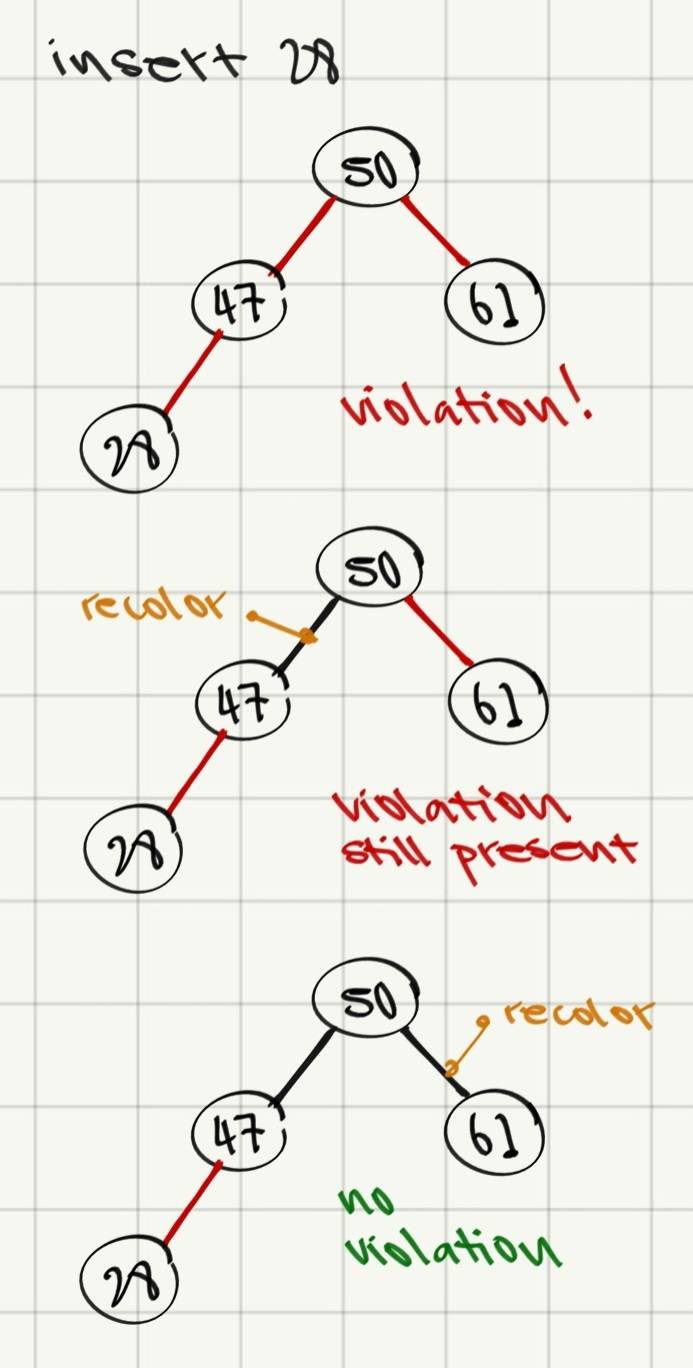 insert 28
50
47
61
28
violation!
50
recolor
47
61
28
violation
still present
50
recolor
47
61
28
no
violation